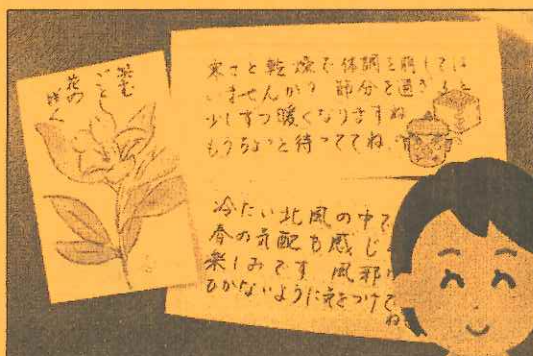 ごとし
花の
咲く
寒さと乾燥で体調を崩しては
いませんか? 節分を過ぎると
少しずつ暖くなりますね
もうちょっと待っててね
冷たい北風の中で
春の気配も感じ
楽しみです 風邪
ひかないように気をつけて
ね